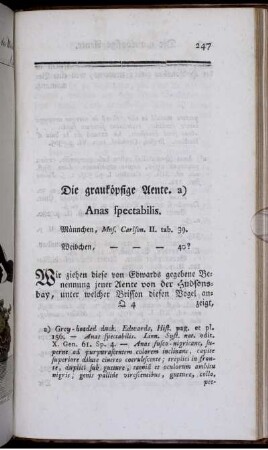 247
Die grauköpfige Aente. a)
Anas spectabilis.
Männchen, Mus. Carlson. II. tab. 39.
Weibchen, — — — 40?
Wir ziehen diese von Edwards gegebene Be-
nennung jener Aente von der Hudsons-
bay, unter welcher Brisson diesen Vogel an-
Q 4 zeigt,
a) Grey-headed duck. Edwards, Hist. pag. et pl.
156. — Anas spectabilis. Linn. Syst. nat. edit.
X. Gen. 61. Sp. 4. — Anas fusco-nigricans, su-
perne ad purpurascentem colorem inclinans, capite
superiore dilute cinereo coerulescente; treplici in fron-
te, duplici sub gutture, taenia et oculorum ambitu
nigris; genis pallide virescentibus, gutture, collo,
pec-